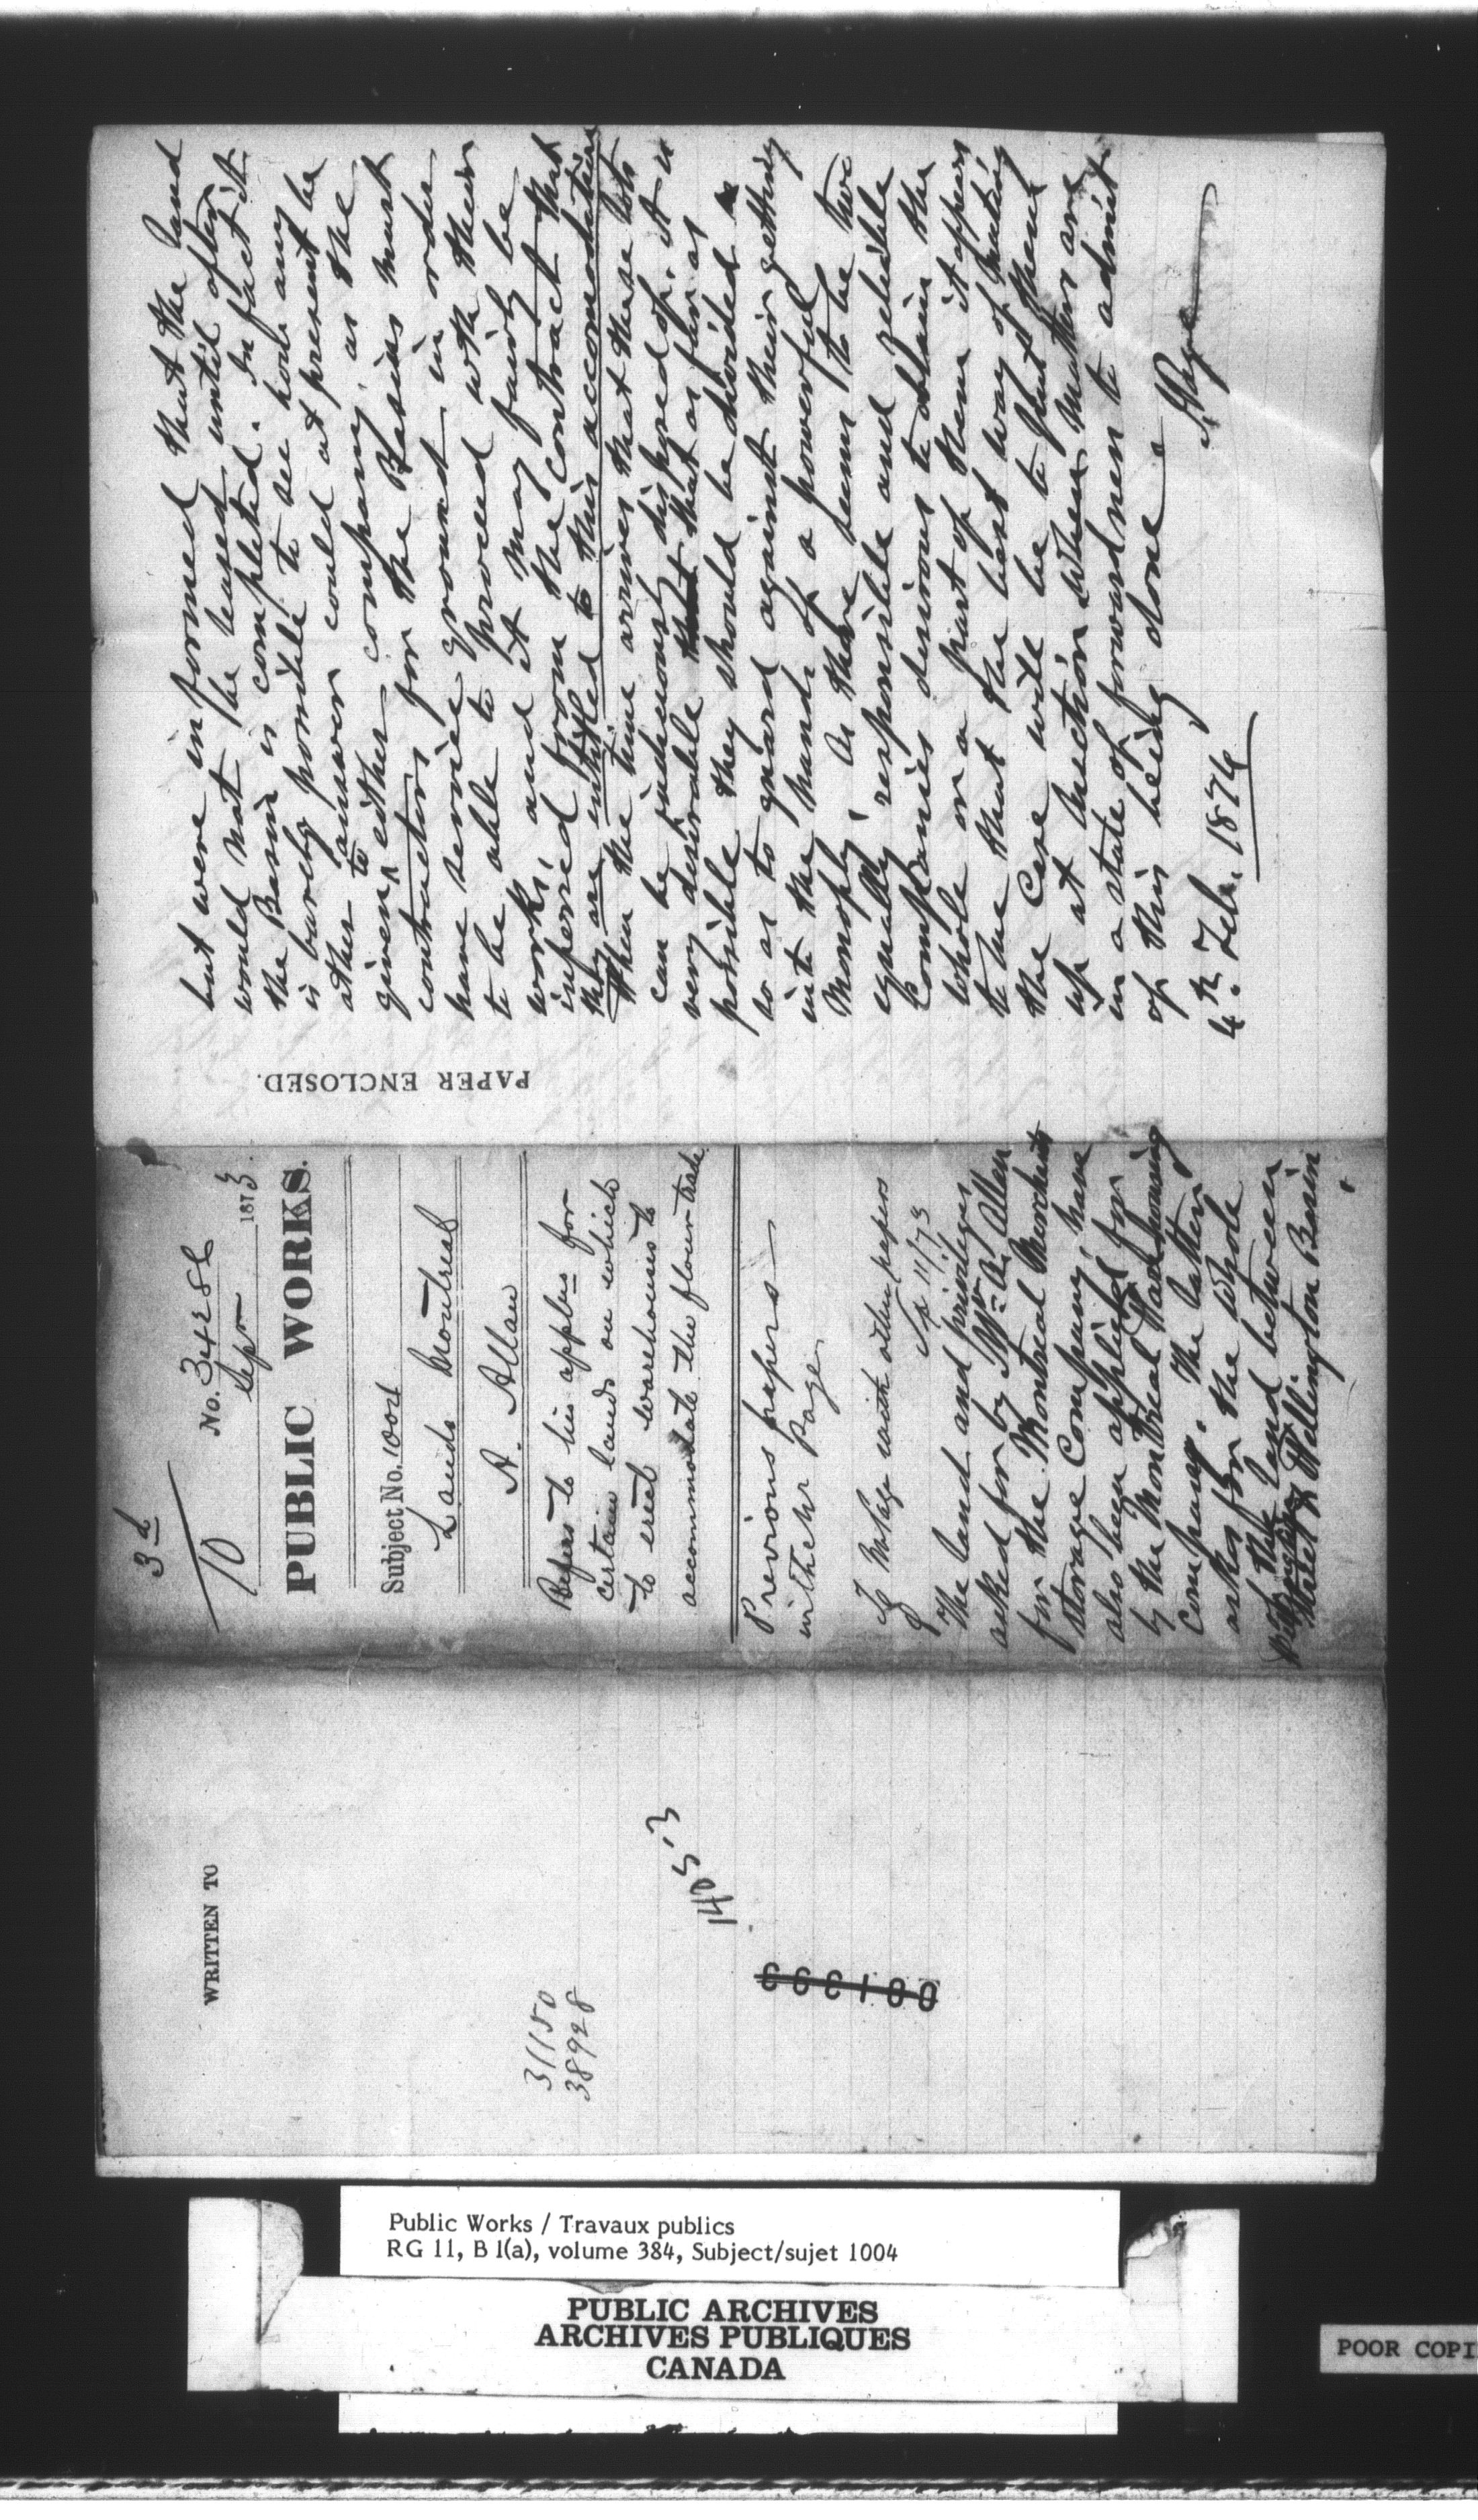 3d
10
No. 34288
Sepr 1873
PUBLIC WORKS.
Subject No. 1004
Lands Montreal
A. Allan
Refers to his appln for
certain lands on which
to erect warehouses to
accommodate the flour trade.
Previous papers
with Mr Page
with other papers
11/73
The land and privileges
asked for by Mr A. Allen
for the Montreal Merchants
storage Company, have
also been applied for
by the Montreal Warehousing
Company. The latter
asks for the whole
of the land between
Street & Wellington Basin
PAPER ENCLOSED.
but were informed that the land
would not be leased until after
the Basin is completed. In fact it
is barely possible to see how any
other answer could at present be
given to either company, as the
contractors for the Basins must
have service ground in order
to be able to proceed with their
works, and it may fairly be
inferred from the contract that
they are entitled to this accomodation
When the time arrives that these lots
can be judiciously disposed of, it is
very desirable that as far as
possible they should be divided
so as to guard against their getting
into the hands of a powerful
Monoply, as there seems to be two
equally responsible and reliable
Companies desirous to obtain the
whole or a part of them it appears
to me that the best way of making
the Case will be to put them
up at Auction when Matters are
in a state of forwardness to admit
of this being done.
Page
4th Feb. 1874
WRITTEN TO
31150
38928
1405.3
081393
Public Works / Travaux publics
RG 11, B 1(a), volume 384, Subject/sujet 1004
PUBLIC ARCHIVES
ARCHIVES PUBLIQUES
CANADA
POOR COPI